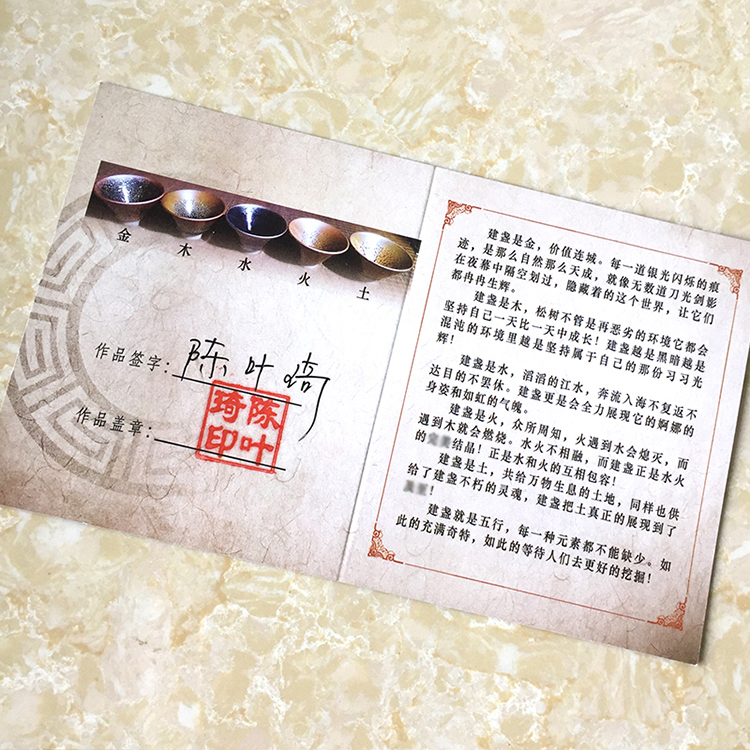 金 木 水 火 土
作品签字：陈叶琦
作品盖章：
陈叶琦印
建盏是金，价值连城。每一道银光闪烁的痕
迹，是那么自然那么天成，就像无数道刀光剑影
在夜幕中隔空划过，隐藏着的这个世界，让它们
都冉冉生辉。
建盏是木，松树不管是再恶劣的环境它都会
坚持自己一天比一天中成长！建盏越是黑暗越是
混沌的环境里越是坚持属于自己的那份习习光
辉！
建盏是水，滔滔的江水，奔流入海不复返不
达目的不罢休。建盏更是会全力展现它的婀娜的
身姿和如虹的气魄。
建盏是火，众所周知，火遇到水会熄灭，而
遇到木就会燃烧。水火不相融，而建盏正是水火
的结晶！正是水和火的互相包容！
建盏是土，共给万物生息的土地，同样也供
给了建盏不朽的灵魂，建盏把土真正的展现到了
！
建盏就是五行，每一种元素都不能缺少。如
此的充满奇特，如此的等待人们去更好的挖掘！